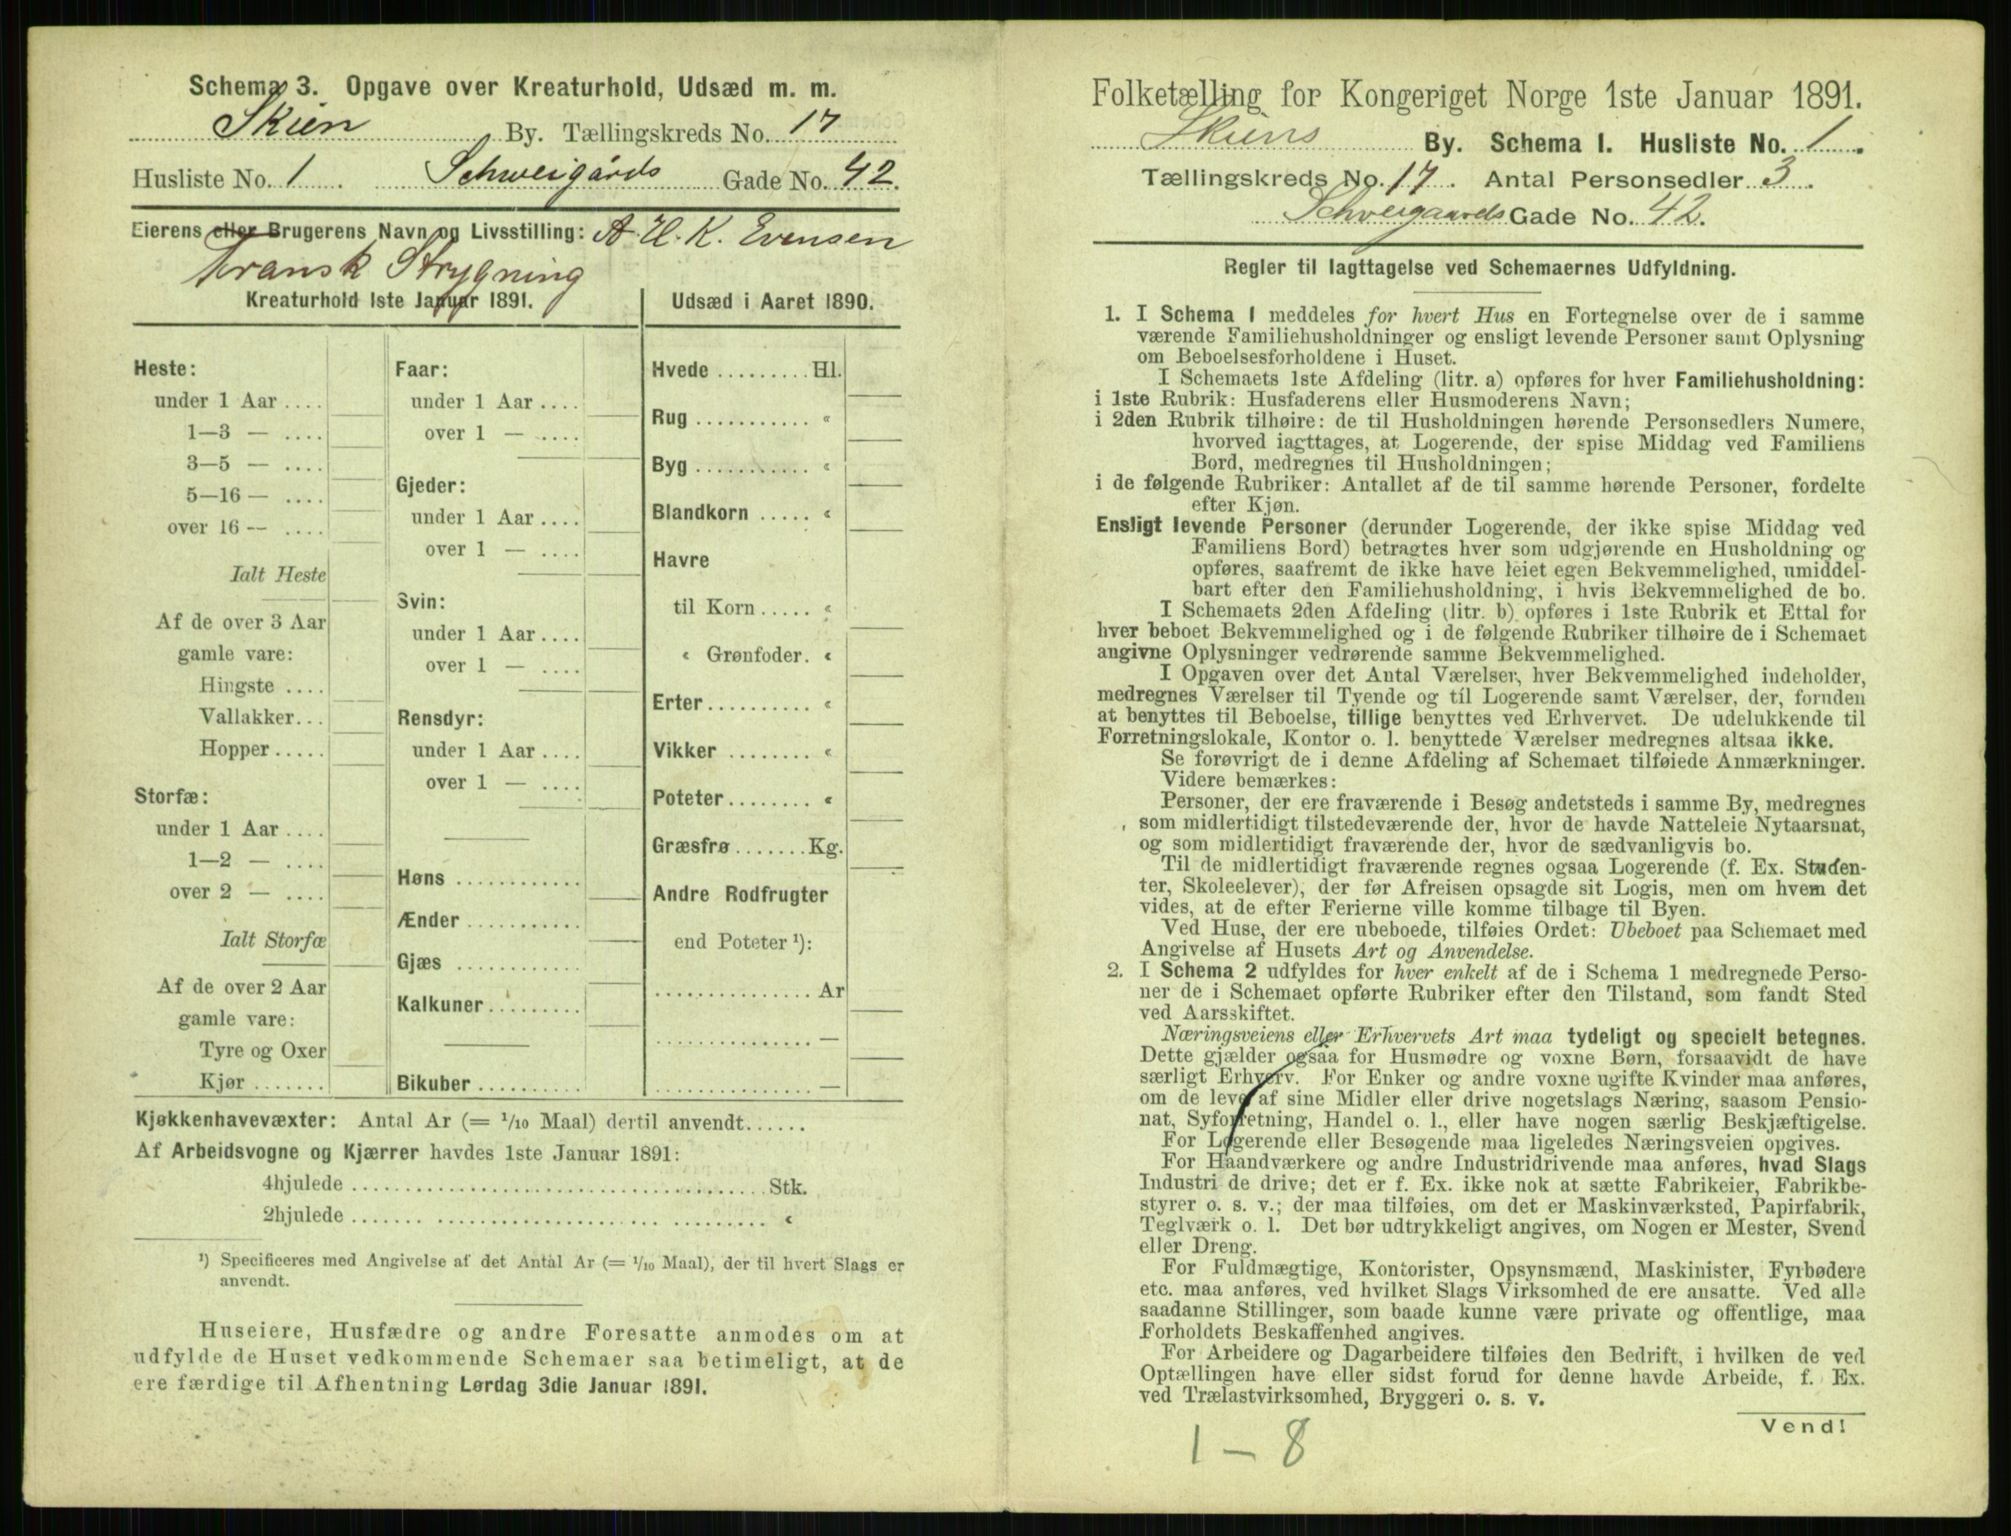 Schema 3. Opgave over Kreaturhold, Udsæd m. m.
Skien By. Tællingskreds No. 17
Husliste No. 1 Schweigårds Gade No. 42.
Eierens eller Brugerens Navn og Livsstilling: A. H. K. Evensen
Fransk Strygning
Kreaturhold 1ste Januar 1891.
Heste:
under 1 Aar ....
1—3 — ....
3—5 — ....
5—16 — ....
over 16 — ....
Ialt Heste
Af de over 3 Aar
gamle vare:
Hingste ....
Vallakker...
Hopper.....
Storfæ:
under 1 Aar ....
1—2 — ....
over 2 — ....
Ialt Storfæ
Af de over 2 Aar
gamle vare:
Tyre og Oxer
Kjør .......
Faar:
under 1 Aar ....
over 1 — ....
Gjeder:
under 1 Aar ....
over 1 — ....
Svin:
under 1 Aar ....
over 1 — ....
Rensdyr:
under 1 Aar ....
over 1 — ....
Høns ............
Ænder ...........
Gjæs ............
Kalkuner.........
Bikuber..........
Udsæd i Aaret 1890.
Hvede .........Hl.
Rug ........... «
Byg ........... «
Blandkorn ..... «
Havre
til Korn..... «
« Grønfoder. «
Erter.......... «
Vikker ........ «
Poteter........ «
Græsfrø.......Kg.
Andre Rodfrugter
end Poteter ¹):
...............Ar
............... —
............... —
Kjøkkenhavevæxter: Antal Ar (= 1/10 Maal) dertil anvendt......
Af Arbeidsvogne og Kjærrer havdes 1ste Januar 1891:
4hjulede ........................................Stk.
2hjulede ....... ..................... ......... «
¹) Specificeres med Angivelse af det Antal Ar (= 1/10 Maal), der til hvert Slags er
anvendt.
Huseiere, Husfædre og andre Foresatte anmodes om at
udfylde de Huset vedkommende Schemaer saa betimeligt, at de
ere færdige til Afhentning Lørdag 3die Januar 1891.
Folketælling for Kongeriget Norge 1ste Januar 1891.
Skiens By. Schema I. Husliste No. 1.
Tællingskreds No. 17. Antal Personsedler 3.
Schveigaards Gade No. 42.
Regler til Iagttagelse ved Schemaernes Udfyldning.
1. I Schema 1 meddeles for hvert Hus en Fortegnelse over de i samme
værende Familiehusholdninger og ensligt levende Personer samt Oplysning
om Beboelsesforholdene i Huset.
I Schemaets 1ste Afdeling (litr. a) opføres for hver Familiehusholdning:
i 1ste Rubrik: Husfaderens eller Husmoderens Navn;
i 2den Rubrik tilhøire: de til Husholdningen hørende Personsedlers Numere,
hvorved iagttages, at Logerende, der spise Middag ved Familiens
Bord, medregnes til Husholdningen;
i de følgende Rubriker: Antallet af de til samme hørende Personer, fordelte
efter Kjøn.
Ensligt levende Personer (derunder Logerende, der ikke spise Middag ved
Familiens Bord) betragtes hver som udgjørende en Husholdning og
opføres, saafremt de ikke have leiet egen Bekvemmelighed, umiddel-
bart efter den Familiehusholdning, i hvis Bekvemmelighed de bo.
I Schemaets 2den Afdeling (litr. b) opføres i 1ste Rubrik et Ettal for
hver beboet Bekvemmelighed og i de følgende Rubriker tilhøire de i Schemaet
angivne Oplysninger vedrørende samme Bekvemmelighed.
I Opgaven over det Antal Værelser, hver Bekvemmelighed indeholder,
medregnes Værelser til Tyende og til Logerende samt Værelser, der, foruden
at benyttes til Beboelse, tillige benyttes ved Erhvervet. De udelukkende til
Forretningslokale, Kontor o. l. benyttede Værelser medregnes altsaa ikke.
Se forøvrigt de i denne Afdeling af Schemaet tilføiede Anmærkninger.
Videre bemærkes:
Personer, der ere fraværende i Besøg andetsteds i samme By, medregnes
som midlertidigt tilstedeværende der, hvor de havde Natteleie Nytaarsnat,
og som midlertidigt fraværende der, hvor de sædvanligvis bo.
Til de midlertidigt fraværende regnes ogsaa Logerende (f. Ex. Studen-
ter, Skoleelever), der før Afreisen opsagde sit Logis, men om hvem det
vides, at de efter Ferierne ville komme tilbage til Byen.
Ved Huse, der ere ubeboede, tilføies Ordet: Ubeboet paa Schemaet med
Angivelse af Husets Art og Anvendelse.
2. I Schema 2 udfyldes for hver enkelt af de i Schema 1 medregnede Perso-
ner de i Schemaet opførte Rubriker efter den Tilstand, som fandt Sted
ved Aarsskiftet.
Næringsveiens eller Erhvervets Art maa tydeligt og specielt betegnes.
Dette gjælder ogsaa for Husmødre og voxne Børn, forsaavidt de have
særligt Erhverv. For Enker og andre voxne ugifte Kvinder maa anføres,
om de leve af sine Midler eller drive nogetslags Næring, saasom Pensio-
nat, Syforretning, Handel o. l., eller have nogen særlig Beskjæftigelse.
For Logerende eller Besøgende maa ligeledes Næringsveien opgives.
For Haandværkere og andre Industridrivende maa anføres, hvad Slags
Industri de drive; det er f. Ex. ikke nok at sætte Fabrikeier, Fabrikbe-
styrer o. s. v.; der maa tilføies, om det er Maskinværksted, Papirfabrik,
Teglværk o. l. Det bør udtrykkeligt angives, om Nogen er Mester, Svend
eller Dreng.
For Fuldmægtige, Kontorister, Opsynsmænd, Maskinister, Fyrbødere
etc. maa anføres, ved hvilket Slags Virksomhed de ere ansatte. Ved alle
saadanne Stillinger, som baade kunne være private og offentlige, maa
Forholdets Beskaffenhed angives.
For Arbeidere og Dagarbeidere tilføies den Bedrift, i hvilken de ved
Optællingen have eller sidst forud for denne havde Arbeide, f. Ex.
ved Trælastvirksomhed, Bryggeri o. s. v.
Vend!
1 — 8